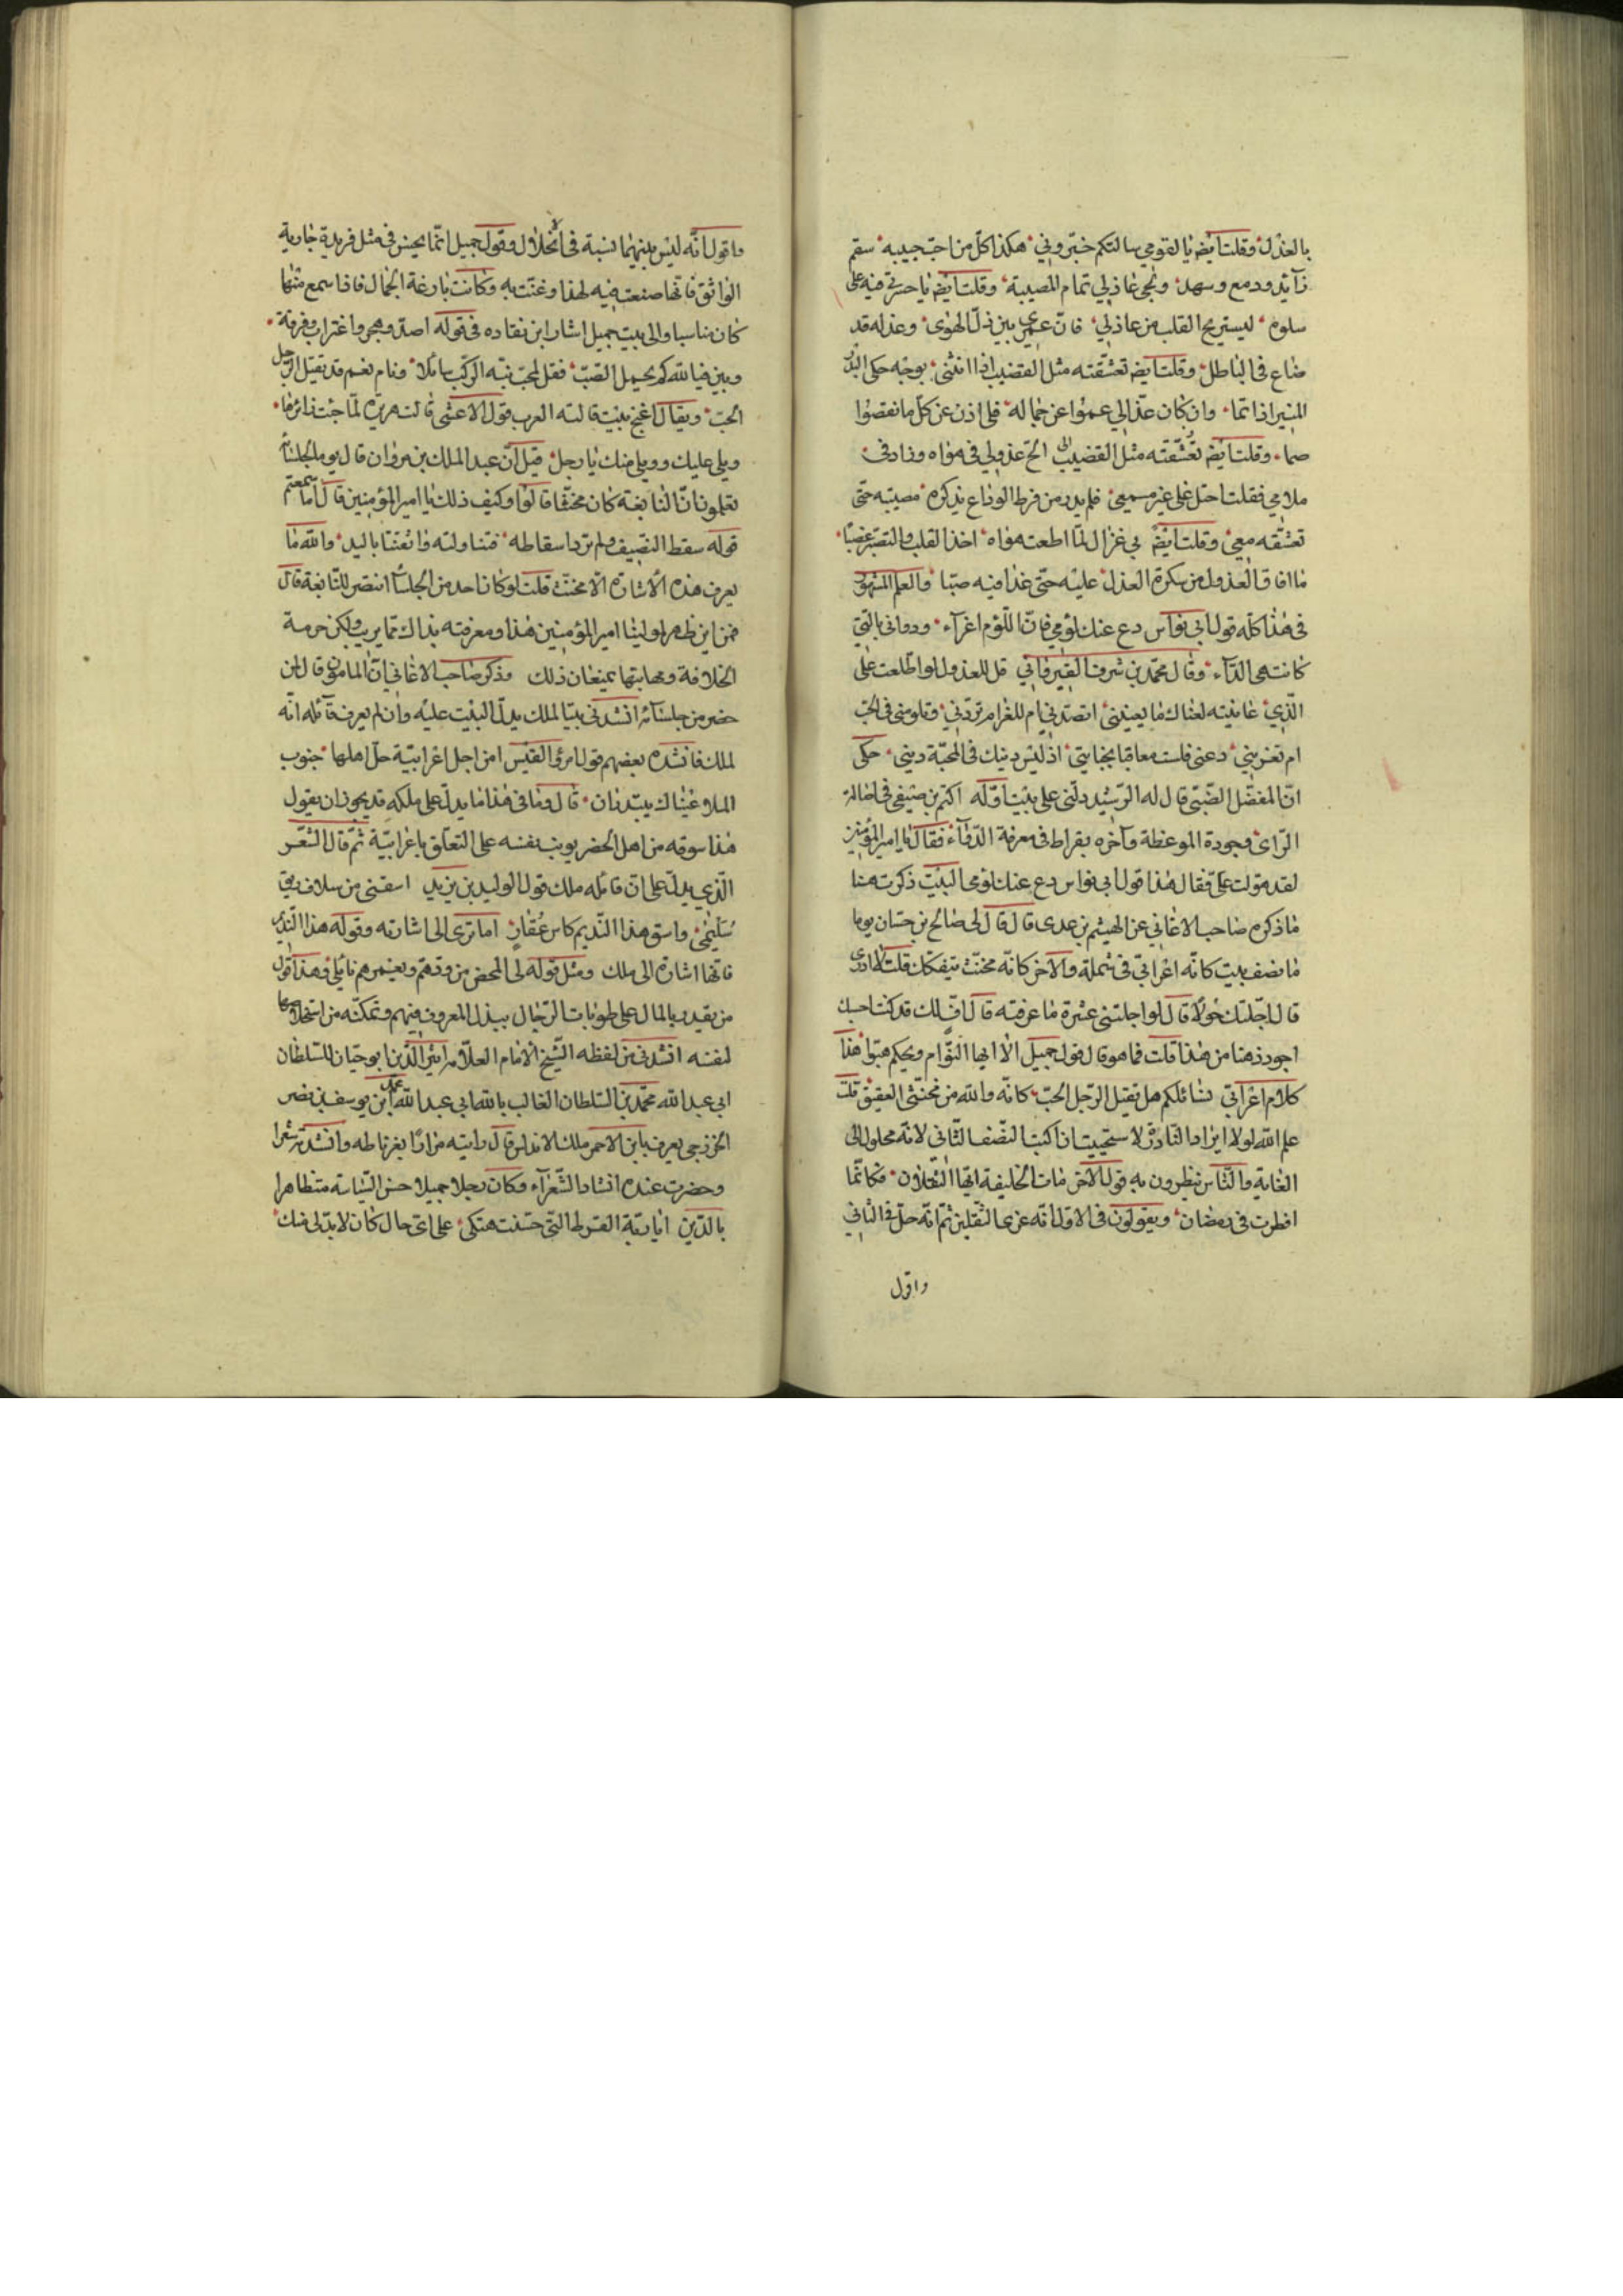 بالعذل وقلت ايضه يا لقومي سالتكم خبروني هكذا كل من احب حبيبه سقم
زآئد ودمع وسهد ونجى عاذلي تمام المصيبة وقلت ايضه يا حسرتي فيه على
سلوه ليستريح القلب من عاذلي فان عمري بين ذل الهوى وعذله قد
ضاع في الباطل وقلت ايضه تعشقته مثل القضيب اذا انثنى بوجه حكى البدر
المنير اذا تما وان كان عذالي عموا عن جماله فلي اذن عن كل ما نقصوا
صما وقلت ايضه تعشقته مثل القضيب الح عذولي في هواه وزاد في
ملامي فقلت احتل على غير مسمعي فلم يدر من فرط الوداع بذكره مصيبته حتى
تعشقه معي وقلت ايضه بي غزال لما اطعت هواه اخذ القلب والتصبر غصبا
ما افاق العذول من سكرة العذل عليه حتى غدا فيه صبا والعلم المشهور
في هذا كله قول ابي نواس دع عنك لومي فان اللوم اغرآء وداوني بالتي
كانت هي الدآء وقال محمد بن شرف القيرواني قل للعذول لو اطلعت على
الذي عاينته لعناك ما يعنيني اتصدني ام للغرام تردني وتلومني في الحب
ام تغريني دعني فلست معاقبا بجنايتي اذ ليس دينك في المحبة ديني حكى
ان المفضل الضبي قال له الرشيد دلني على بيت اوله اكثم بن صيفي في اصالة
الراى وجودة الموعظة وآخره بقراط في معرفة الدوآء فقال يا امير المؤمنين
لقد هولت علي فقال هذا قول ابي نواس دع عنك لومي البيت ذكرت هنا
ما ذكره صاحب الاغاني عن الهيثم بن عدى قال قال لي صالح بن حسان يوما
ما نصف بيت كانه اعرابي في شملة والاخر كانه مخنث يتفكك قلت لا ادرى
قال اجلتك حولا قال لو اجلتني عشرة ما عرفته قال اف لك قد كنت احسبك
اجود ذهنا من هذا قلت فما هو قال قول جميل الا ايها النوام ويحكم هبوا هذا
كلام اعرابي نسائلكم هل يقتل الرجل الحب كانه والله من مخنثي العقيق قلت
علم الله لولا ايراد النادر لاستحييت ان اكتب النصف الثاني لانه محلول الى
الغاية والناس ينظرون به قول الآخر مات الخليفة ايها الثقلان فكانما
افطرت في رمضان ويقولون في الاول انه عزى الثقلين ثم انه حل في الثاني
واقول
واقول انه ليس بينهما نسبة في الانحلال وقول جميل انما يحسن في مثل فريدة جارية
الواثق فانها صنعت فيه لهذا وغنت به وكانت بارعة الجمال فاذا سمع منها
كان مناسبا والى بيت جميل اشار ابن نقاده في قوله اصد وهجر واغتراب وفرقة
وبين فيا لله كم يحمل الصب فقل لمحب نبه الركب سائلا ونام نعم قد يقتل الرجل
الحب ويقال اغنج بيت قالته العرب قول الاعشى قالت هريرة لما جئت زائرها
ويلي عليك وويلي منك يا رجل قيل ان عبد الملك بن مروان قال يوما لجلسآئه
تعلمون ان النابغة كان مخنثا قالوا وكيف ذلك يا امير المؤمنين قال اما سمعتم
قوله سقط النصيف ولم ترد اسقاطه فتناولته واتقتنا باليد والله ما
يعرف هذه الاشارة الا مخنث قلت لو كان احد من الجلسآء انتصر للنابغة قال
فمن اين ظهر لمولينا امير المؤمنين هذا ومعرفته بذاك مما يريب ولكن حرمة
الخلافة ومهابتها يمنعان ذلك وذكر صاحب الاغاني ان المامون قال لمن
حضر من جلسآئه انشدني بيتا لملك يدل البيت عليه وان لم يعرف قآئله انه
لملك فانشده بعضهم قول امرئ القيس امن اجل اعرابية حل اهلها جنوب
الملا عيناك يبتدران قال وما في هذا ما يدل على ملكه قد يجوز ان يقول
هذا سوقه من اهل الحضر يونب نفسه على التعلق باعرابية ثم قال الشعر
الذي يدل على ان قائله ملك قول الوليد بن يزيد اسقني من سلاف ريق
سليمى واسق هذا النديم كاس عقار اما ترى الى اشارته وقوله هذا النديم
فانها اشارة الى ملك ومثل قوله لي المحض من ودهم ويغمرهم نائلي وهذا قول
من يقدر بالمال على طويات الرجال ببذل المعروف فيهم وتمكنه من استخلاصها
لنفسه انشدني من لفظه الشيخ الامام العلامه اثير الدين ابو حيان للسلطان
ابي عبد الله محمد بن السلطان الغالب بالله ابي عبد الله محمد بن يوسف بن نصر
الخزرجي يعرف بابن الاحمر ملك الاندلس قال رايته مرارا بغرناطه وانشدته شعرا
وحضرت عنده انشاد الشعرآء وكان رجلا جميلا حسن السياسة متظاهرا
بالدين ايا ربة القرط التي حسنت هتكي على اي حال كان لا بد لي منك